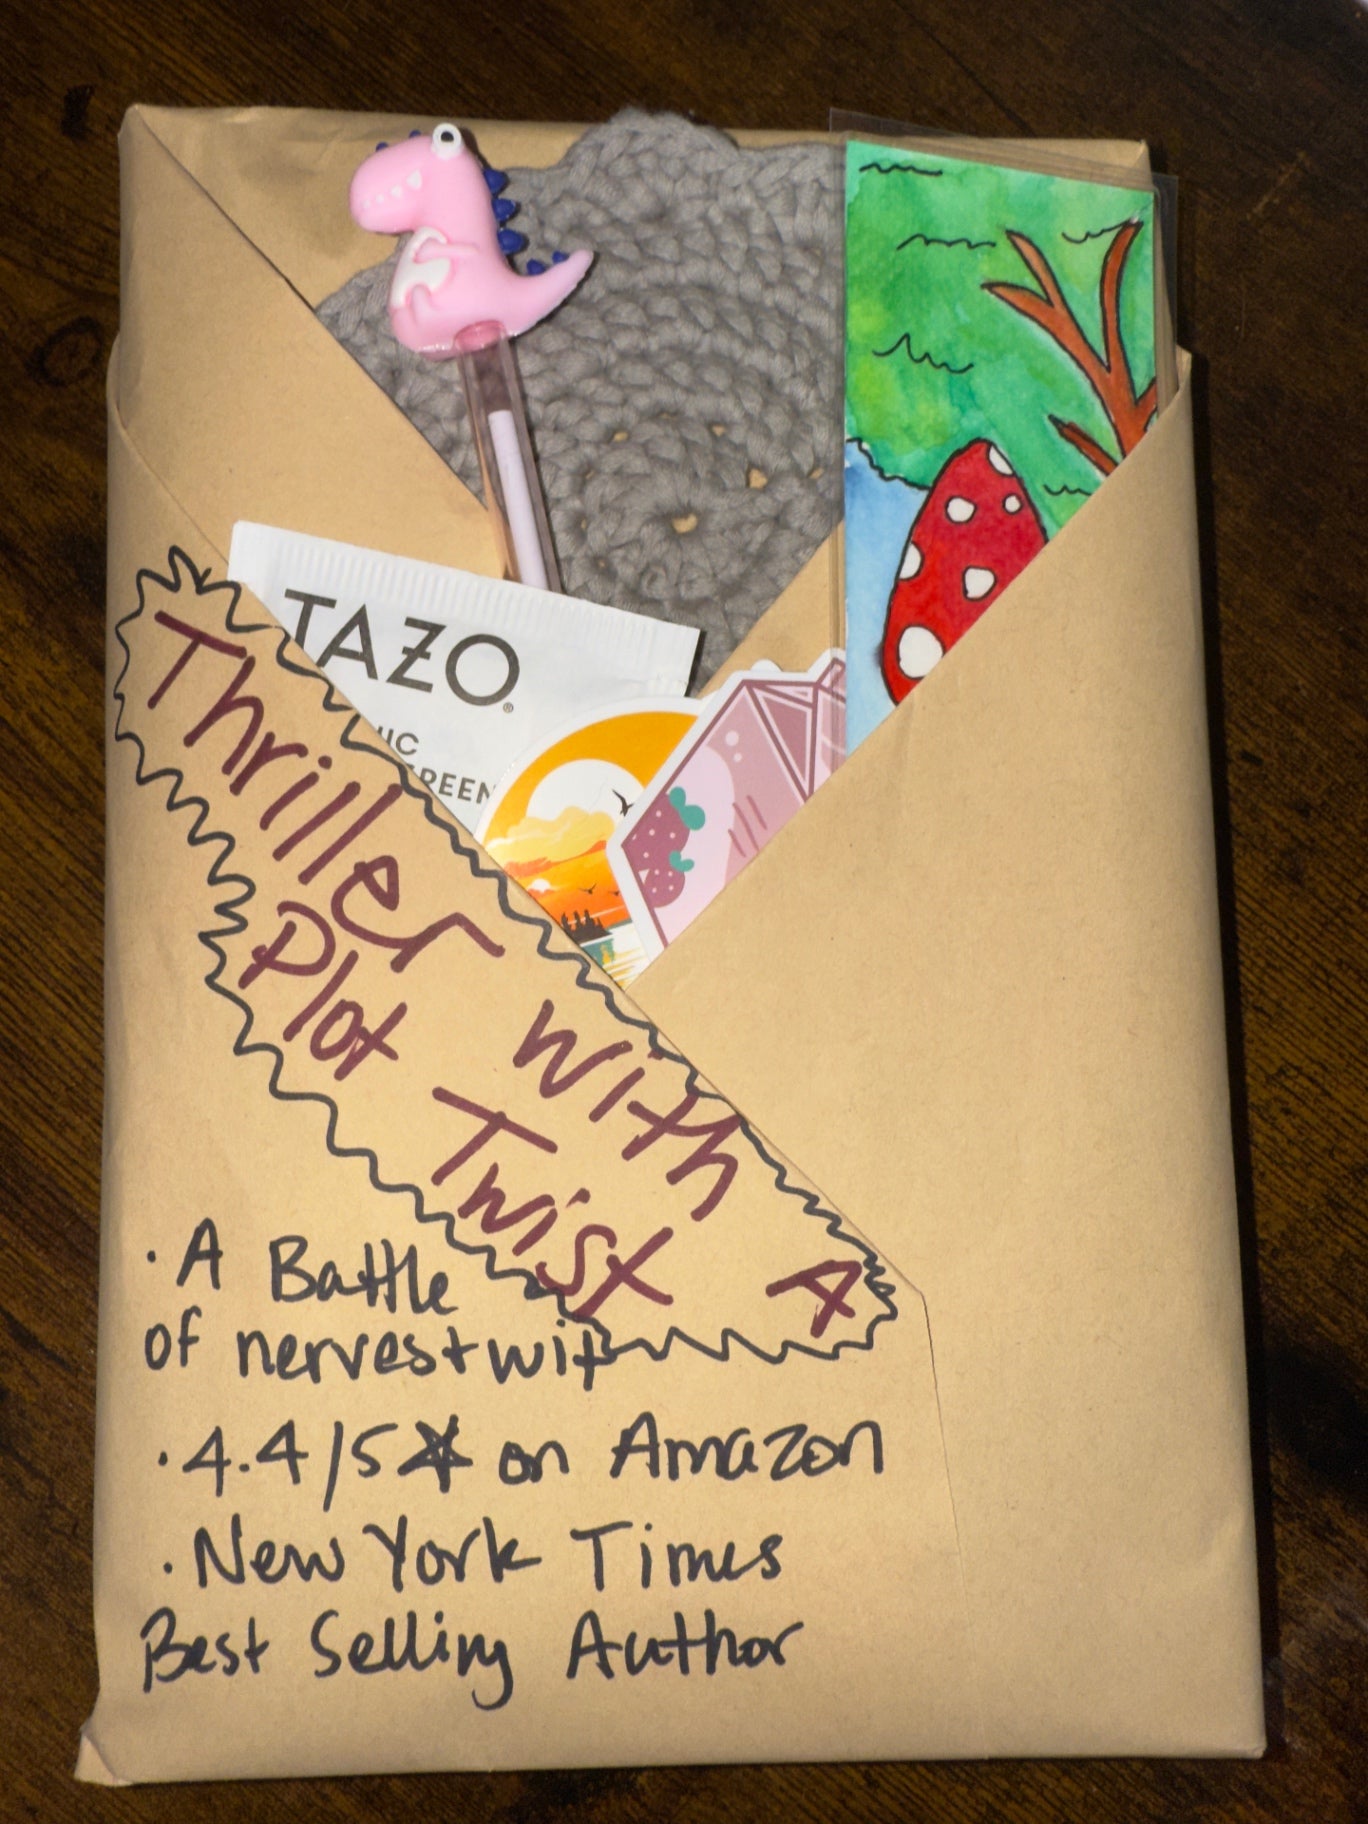 TAZO®
IC
REEN
Thriller with A
Plot Twist
· A Battle
of nerves + wit
· 4.4/5☆ on Amazon
· New York Times
Best Selling Author